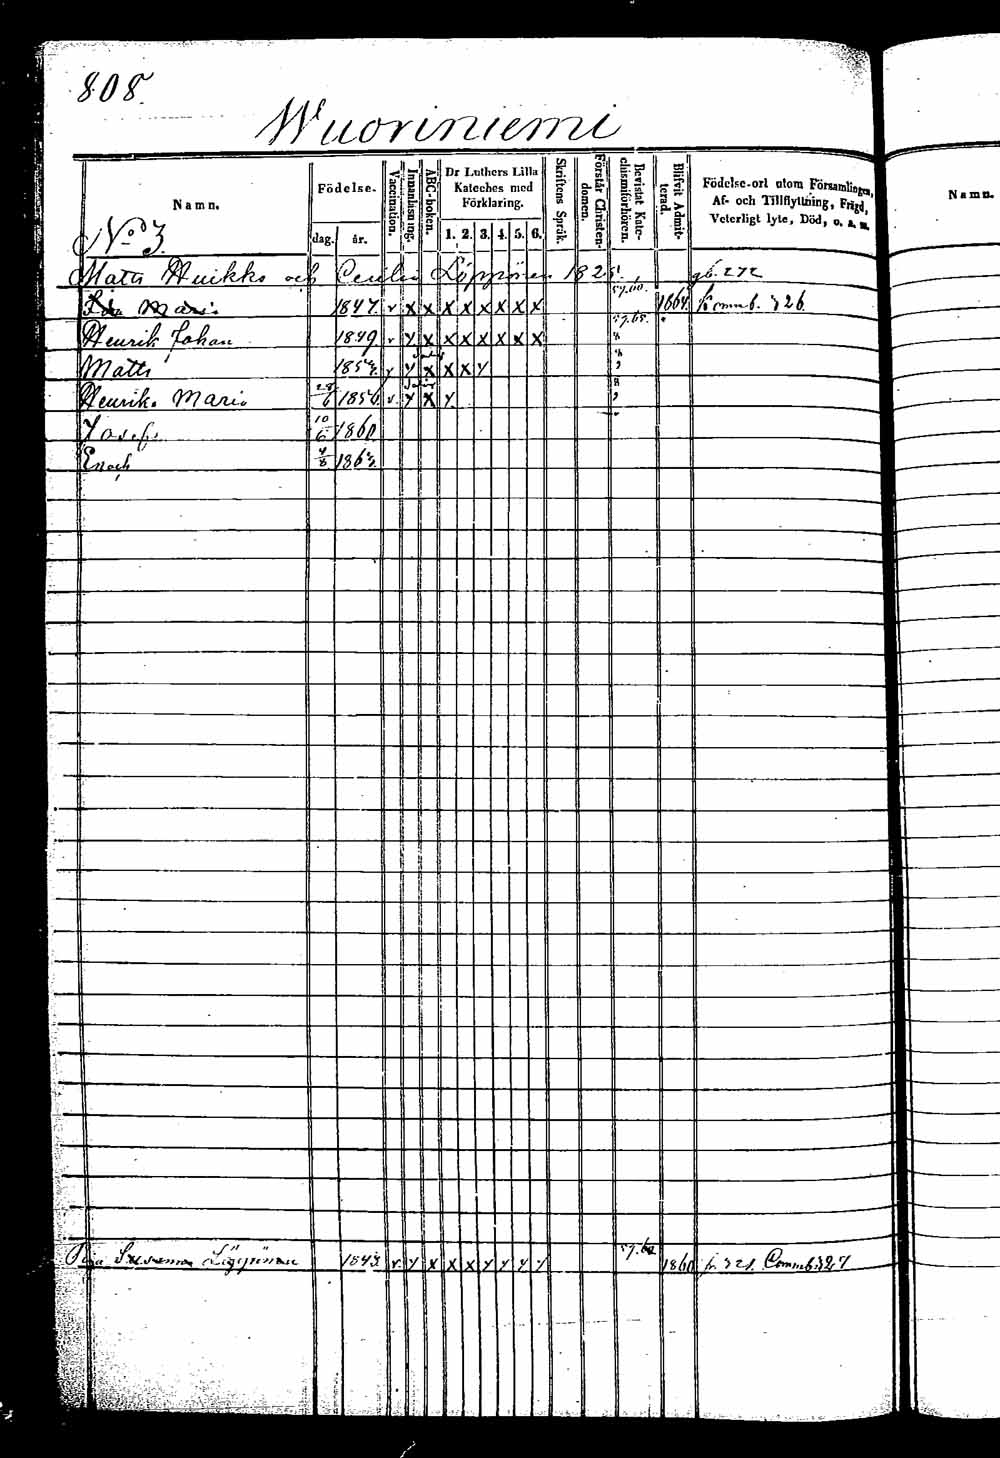 808.
Wuoriniemi
Namn. Födelse. dag. år. Vaccination. Innanläsning. ABC-boken. Dr Luthers Lilla Kateches med Förklaring. 1. 2. 3. 4. 5. 6. Skriftens Språk. Förstår Christendomen. Bevistat Katechismiförhören. Blifvit Admitterad. Födelse-ort utom Församlingen, Af- och Tillflyttning, Frägd, Veterligt lyte, Död, o. s. v. Namn.
No 3.
Matts Huikko och Cecilia Löppönen 1825. 272
Maria 1847. v x x x x x x x x 1864. Commb. 326.
Henrik Johan 1849. v y x x x x x x x
Matts v y x x x y
Henrika Maria 28/6 1856 v. y x y.
Josef 10/6 1860
Enoch 4/8
Piga Susanna Löppönen 1843. v. y x x x y y y y 57.60 1860 321. Commb. 327